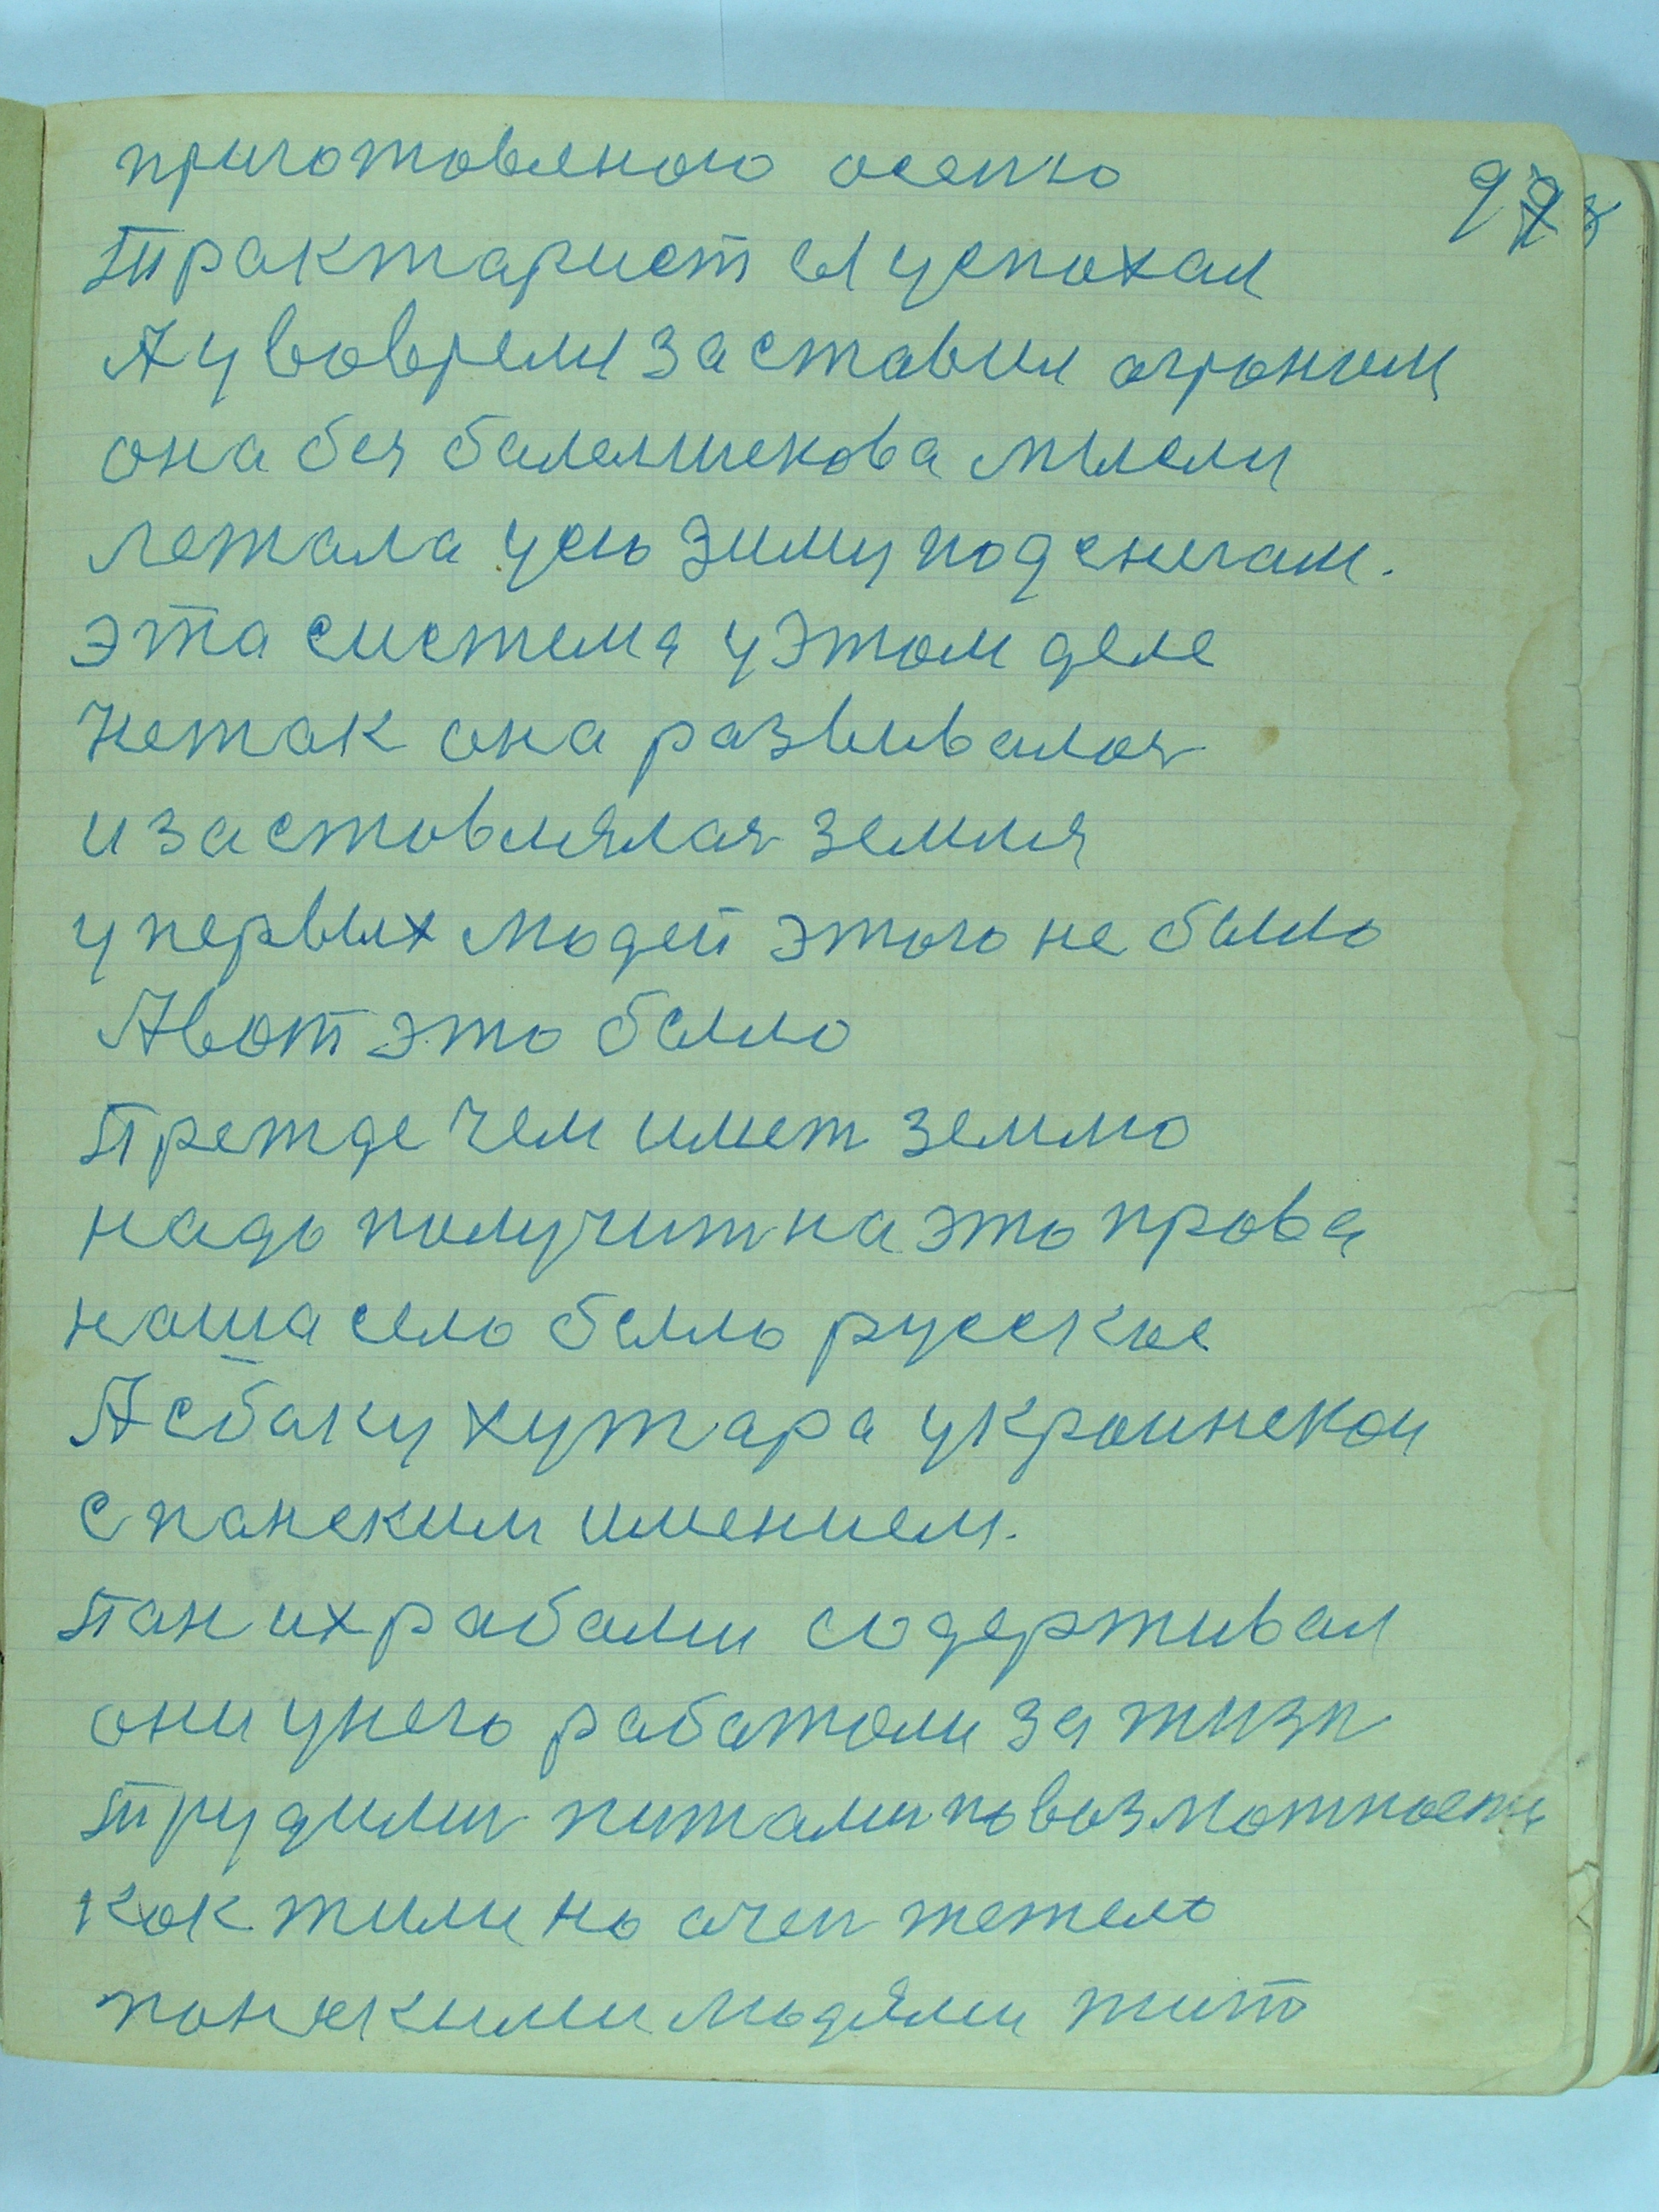 приготовленою осенью
Трактарист ея успохал
А у вовремя заставил огроним
она бея балелшекова мысли
лежала усю зиму под снигам.
эта система у этом деле
Нетак она развивалоя
и заставлялая земля
у первых людей этого не было
А вот это было
Прежде чем имет землю
надо получит на это права
наша село было русское
А сбаку хутара украинскои
с панским имением.
Пан их рабами содерживал
они унего работали за жизн
трудили питалии по возможности
как жили но очен тежело
панскими людями жит